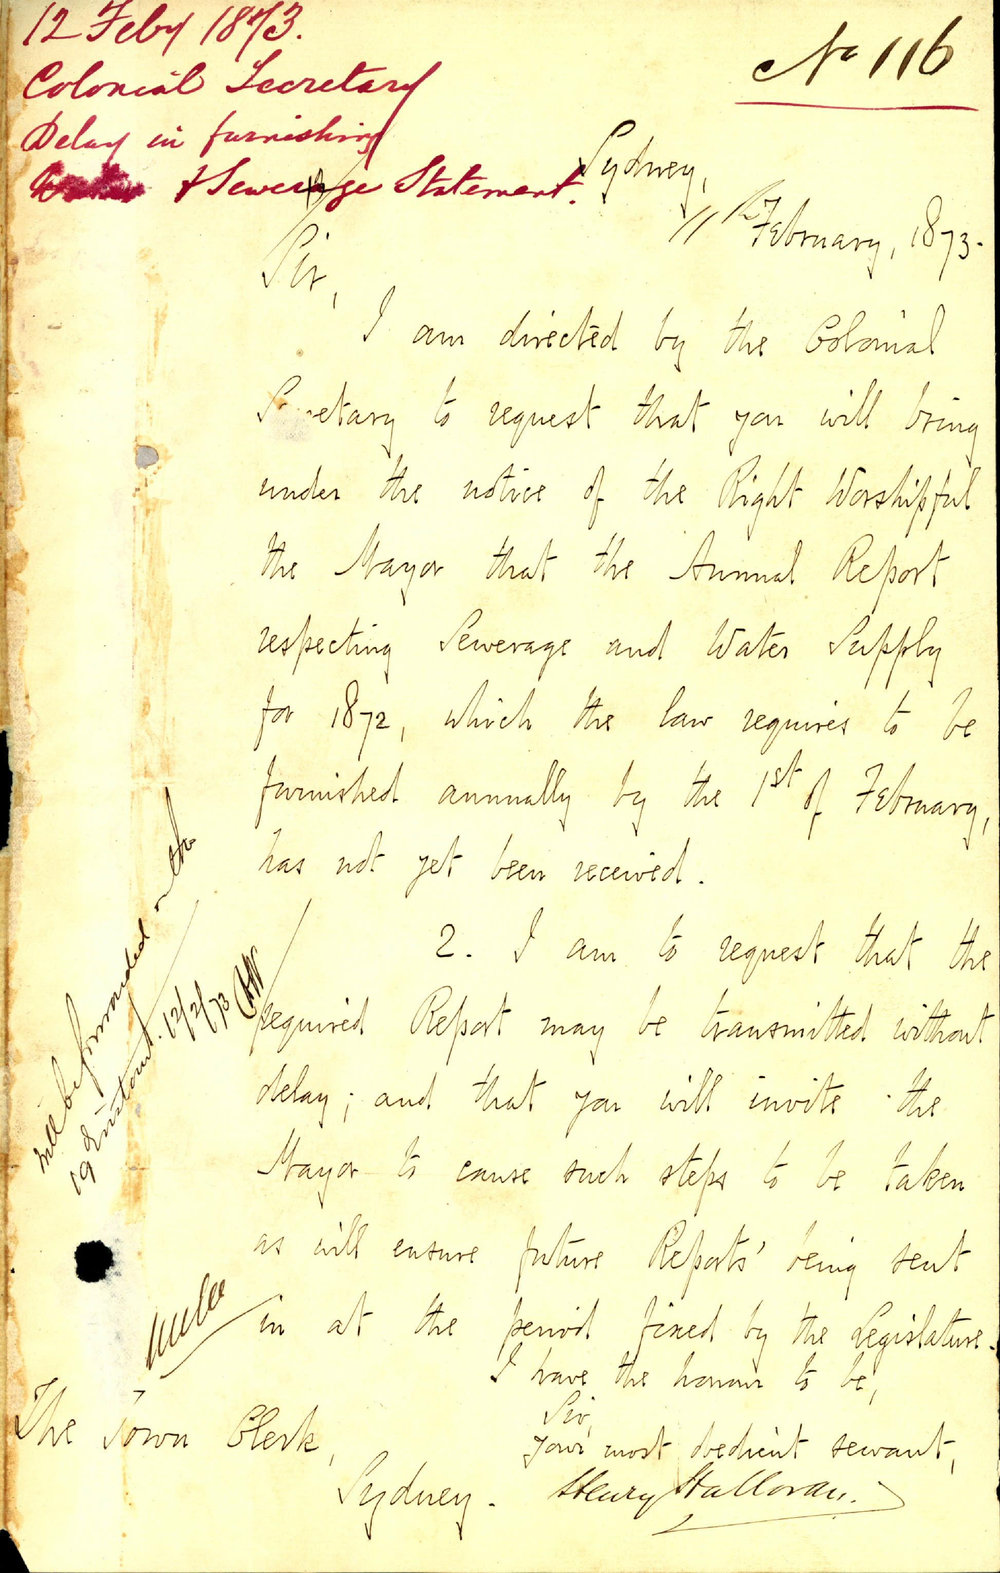 12 Feby 1873.
Colonial Secretary
Delay in furnishing
& Sewerage Statement.
No 116
Sydney,
11th February, 1873.
Sir,
I am directed by the Colonial
Secretary to request that you will bring
under the notice of the Right Worshipful
the Mayor that the Annual Report
respecting Sewerage and Water Supply
for 1872, which the law requires to be
furnished annually by the 1st of February,
has not yet been received.
2. I am to request that the
required Report may be transmitted without
delay; and that you will invite the
Mayor to cause such steps to be taken
as will ensure future Reports' being sent
in at the period fixed by the Legislature.
I have the honour to be,
Sir,
your most obedient servant,
Henry Halloran.
The Town Clerk,
Sydney.
Will be forwarded on the
19th instant. 12/2/73